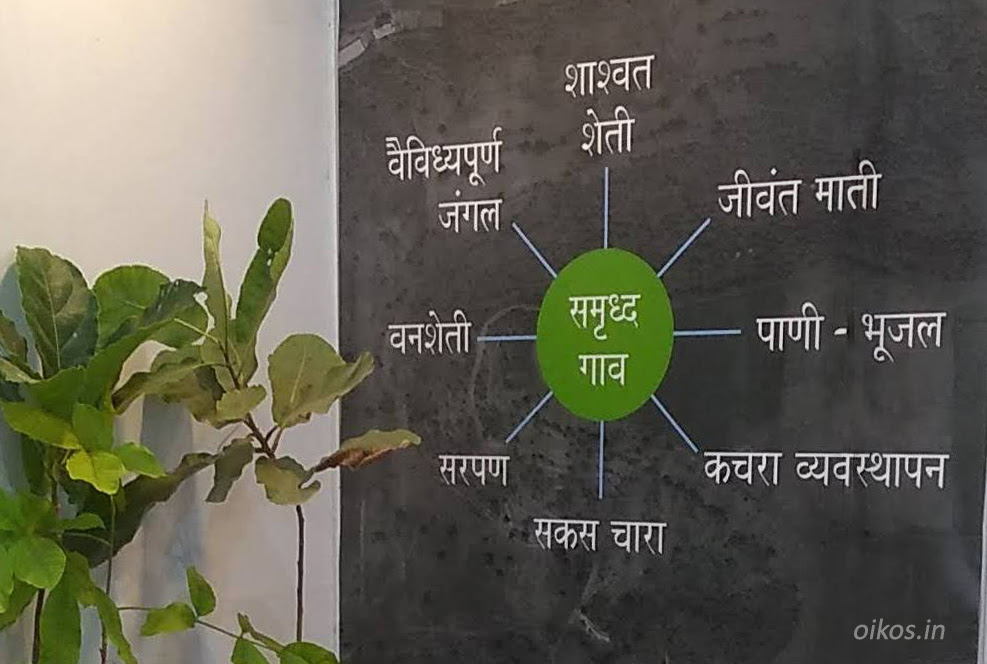 शाश्वत
शेती
वैविध्यपूर्ण
जंगल
जीवंत माती
समृध्द
गाव
वनशेती
पाणी - भूजल
सरपण
कचरा व्यवस्थापन
सकस चारा
oikos.in